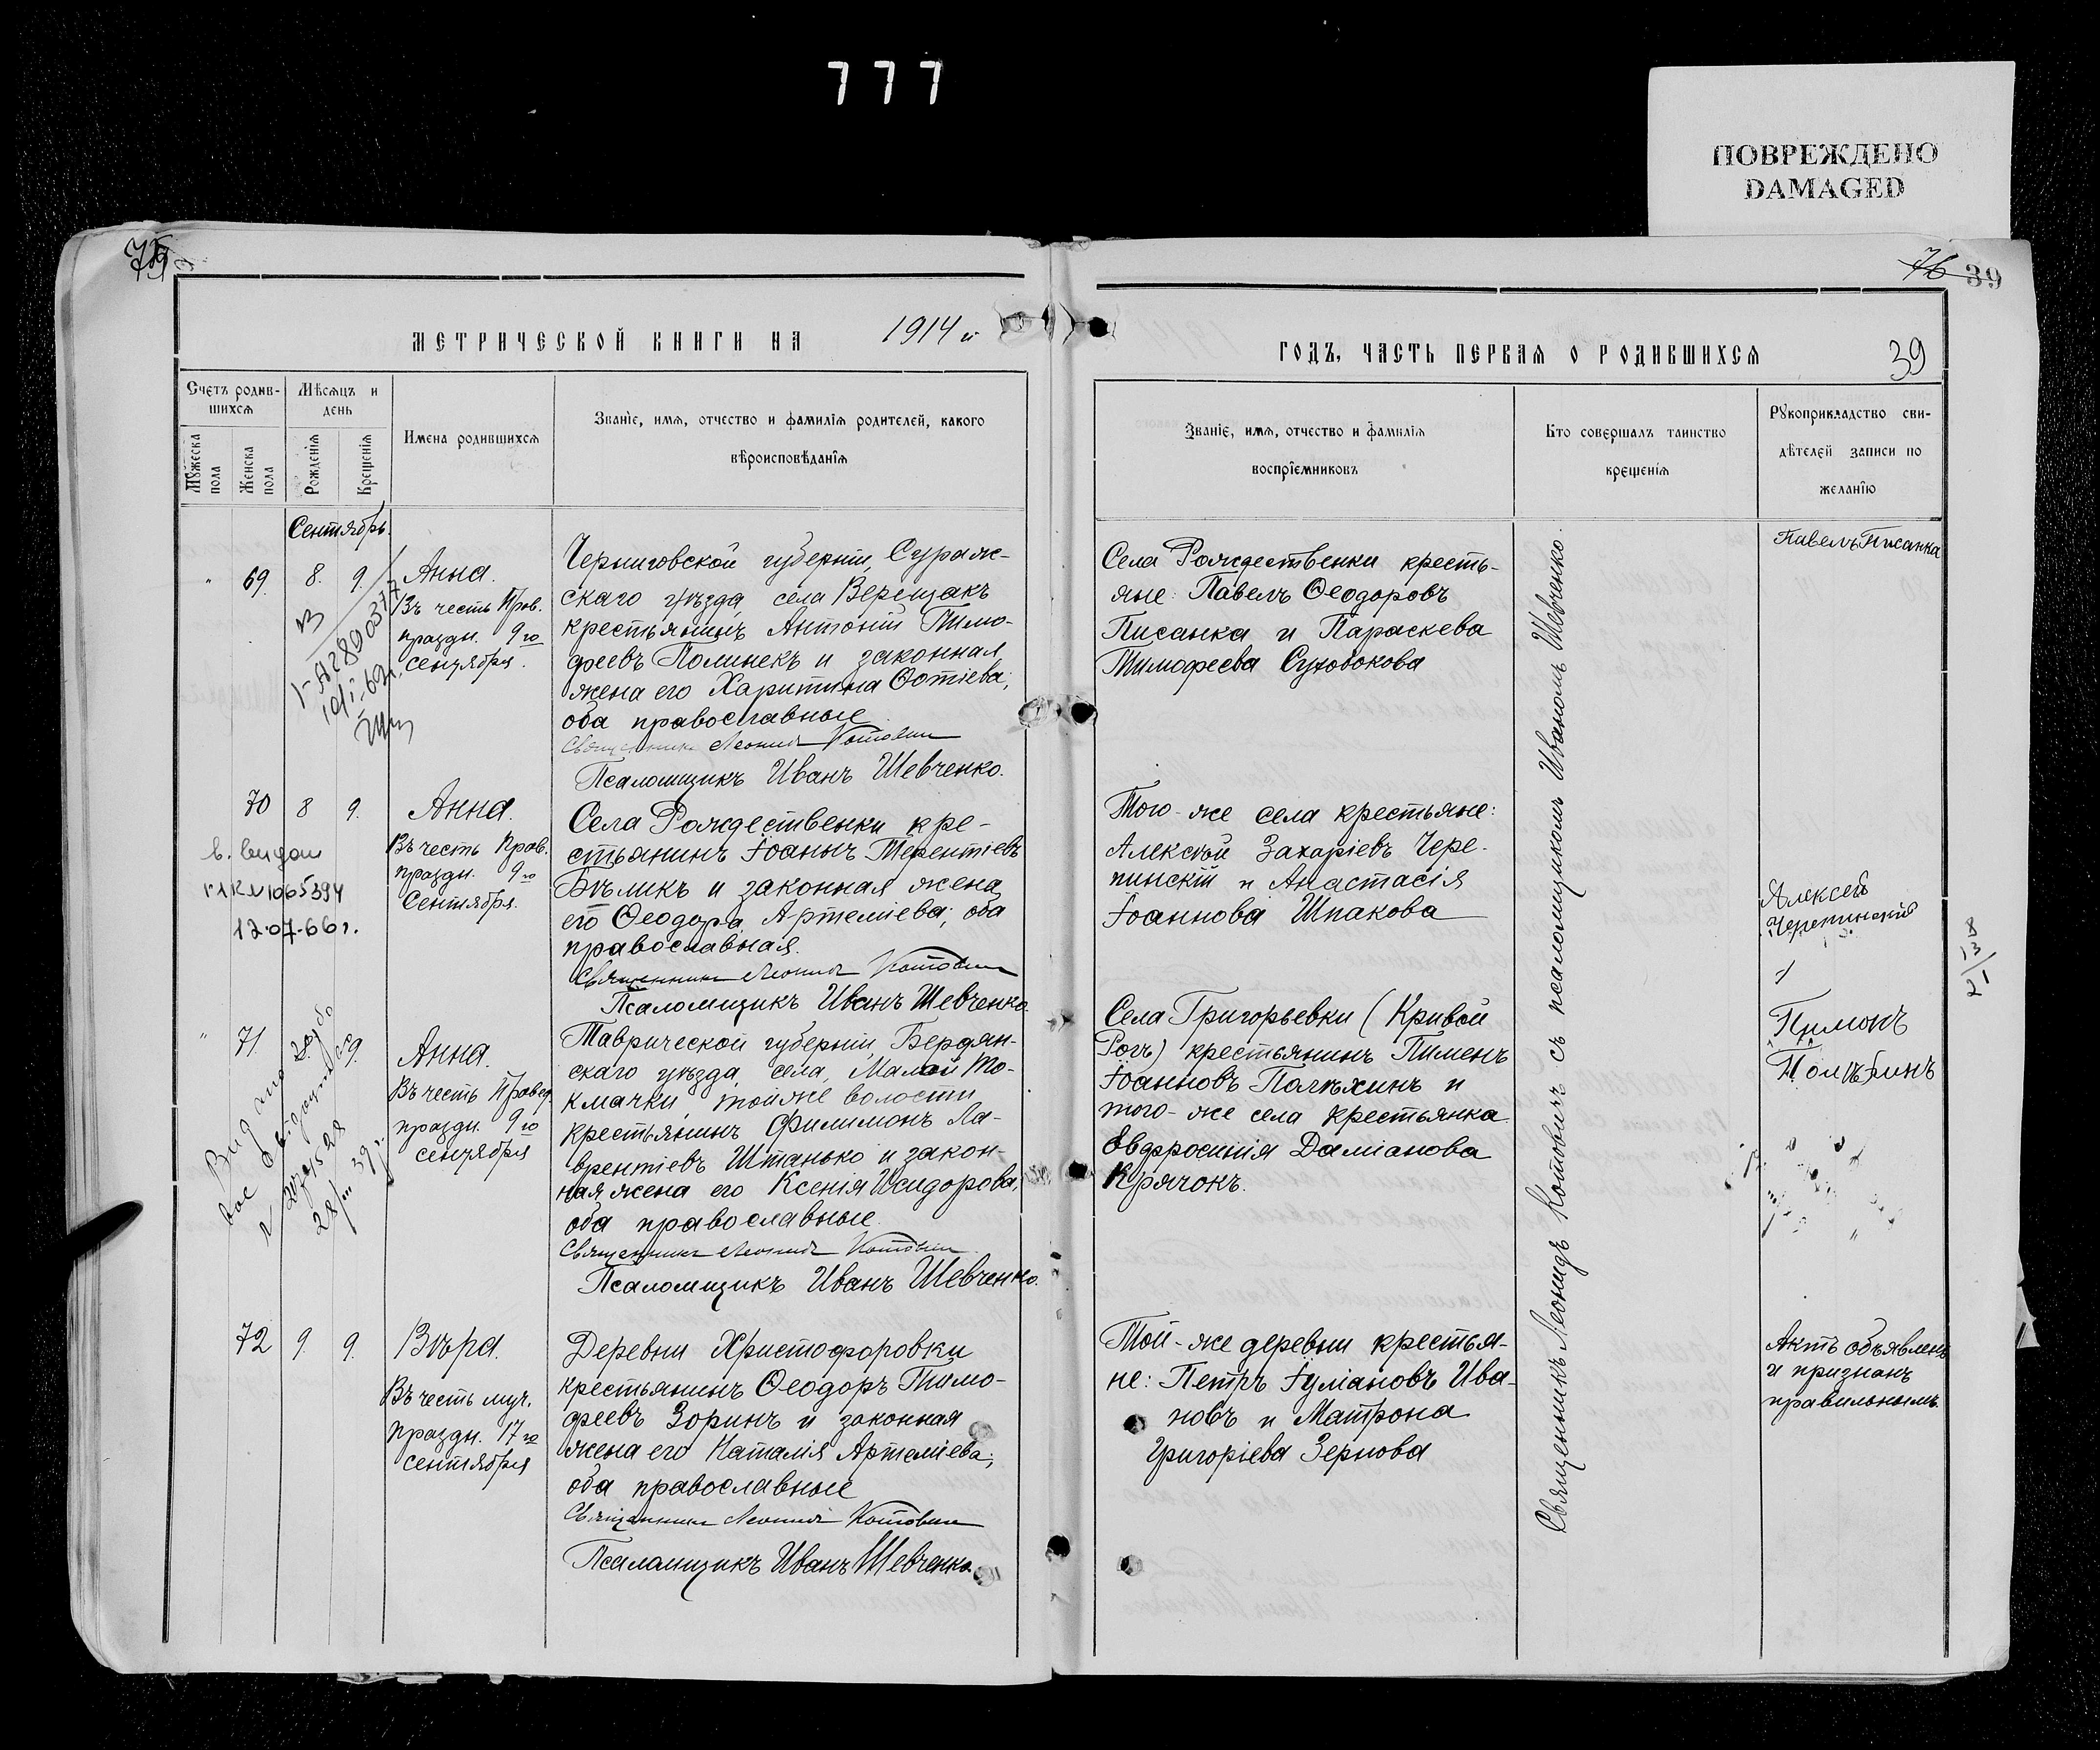 777
ПОВРЕЖДЕНО
DAMAGED
75
76 39
МЕТРИЧЕСКОЙ КНИГИ НА 1914 й
ГОДЪ, ЧАСТЬ ПЕРВАЯ О РОДИВШИХСЯ
39
Счетъ родив-
шихся
Мужеска пола
Женска пола
Мѣсяцъ и
день
Рожденія
Крещенія
Имена родившихся
Званіе, имя, отчество и фамилія родителей, какого
вѣроисповѣданія
Званіе, имя, отчество и фамилія
воспріемниковъ
Кто совершалъ таинство
крещенія
Рукоприкладство сви-
дѣтелей записи по
желанію
Сентябрь
" 69. 8. 9.
Анна.
Въ честь Прав.
праздн. 9го
сентября.
Черниговской губерніи, Сураж-
скаго уѣзда села Верещакъ
крестьянинъ Антоній Тимо-
феевъ Полинекъ и законная
жена его Харитина Фотіева;
оба православные
Священникъ Леонидъ Котовичъ
Псаломщикъ Иванъ Шевченко.
Села Рождественки кресть-
яне: Павелъ Ѳеодоровъ
Писанка и Параскева
Тимофеева Суховокова
Павелъ Писанка
70 8 9.
Анна.
Въ честь Прав.
праздн. 9го
Сентября.
1065394
12.07.66г.
Села Рождественки кре-
стьянинъ Іоаннъ Терентіевъ
Бѣликъ и законная жена
его Ѳеодора Артеміева; оба
православная.
Священникъ Леонидъ Котовичъ
Псаломщикъ Иванъ Шевченко.
Того-же села крестьяне:
Алексѣй Захаріевъ Чере-
пинскій и Анастасія
Іоаннова Шпакова
Алексей
Черепинский
" 71. 9.
Анна.
Въ честь Правед.
праздн. 9го
сентября
Таврической губерніи, Бердян-
скаго уѣзда, села, Малой То-
кмачки, тойже волости
крестьянинъ Филимонъ Ла-
врентіевъ Штанько и закон-
ная жена его Ксенія Исидорова,
оба православные.
Священникъ Леонидъ Котовичъ
Псаломщикъ Иванъ Шевченко.
Села Григорьевки (Кривой
Рогъ) крестьянинъ Пименъ
Іоанновъ Палѣхинъ и
того-же села крестьянка
Евфросинія Даміанова
Крячокъ.
72 9 9.
Вѣра.
Въ честь муч.
праздн. 17го
сентября
Деревни Христофоровки
крестьянинъ Ѳеодоръ Тимо-
феевъ Зоринъ и законная
жена его Наталія Артеміева;
оба православные
Священникъ Леонидъ Котовичъ
Псаломщикъ Иванъ Шевченко.
Той-же деревни крестья-
не: Петръ Іуліановъ Ива-
новъ и Матрона
Григоріева Зернова
Актъ объявленъ
и признанъ
правильнымъ.
Священникъ Леонидъ Котовичъ съ псаломщикомъ Иваномъ Шевченко.